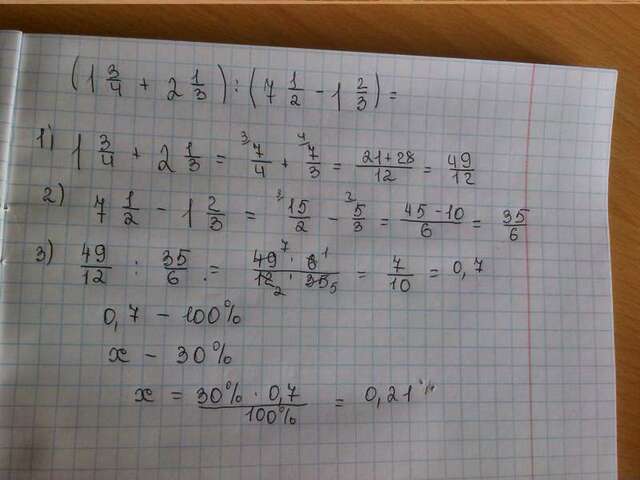 (1 3/4 + 2 1/3) : (7 1/2 - 1 2/3) =
1) 1 3/4 + 2 1/3 = ³⁾7/4 + ⁴⁾7/3 = 21+28/12 = 49/12
2) 7 1/2 - 1 2/3 = ³⁾15/2 - ²⁾5/3 = 45-10/6 = 35/6
3) 49/12 : 35/6 = 49⁷ · 6¹/12₂ · 35₅ = 7/10 = 0,7
0,7 - 100%
x - 30%
x = 30% · 0,7/100% = 0,21